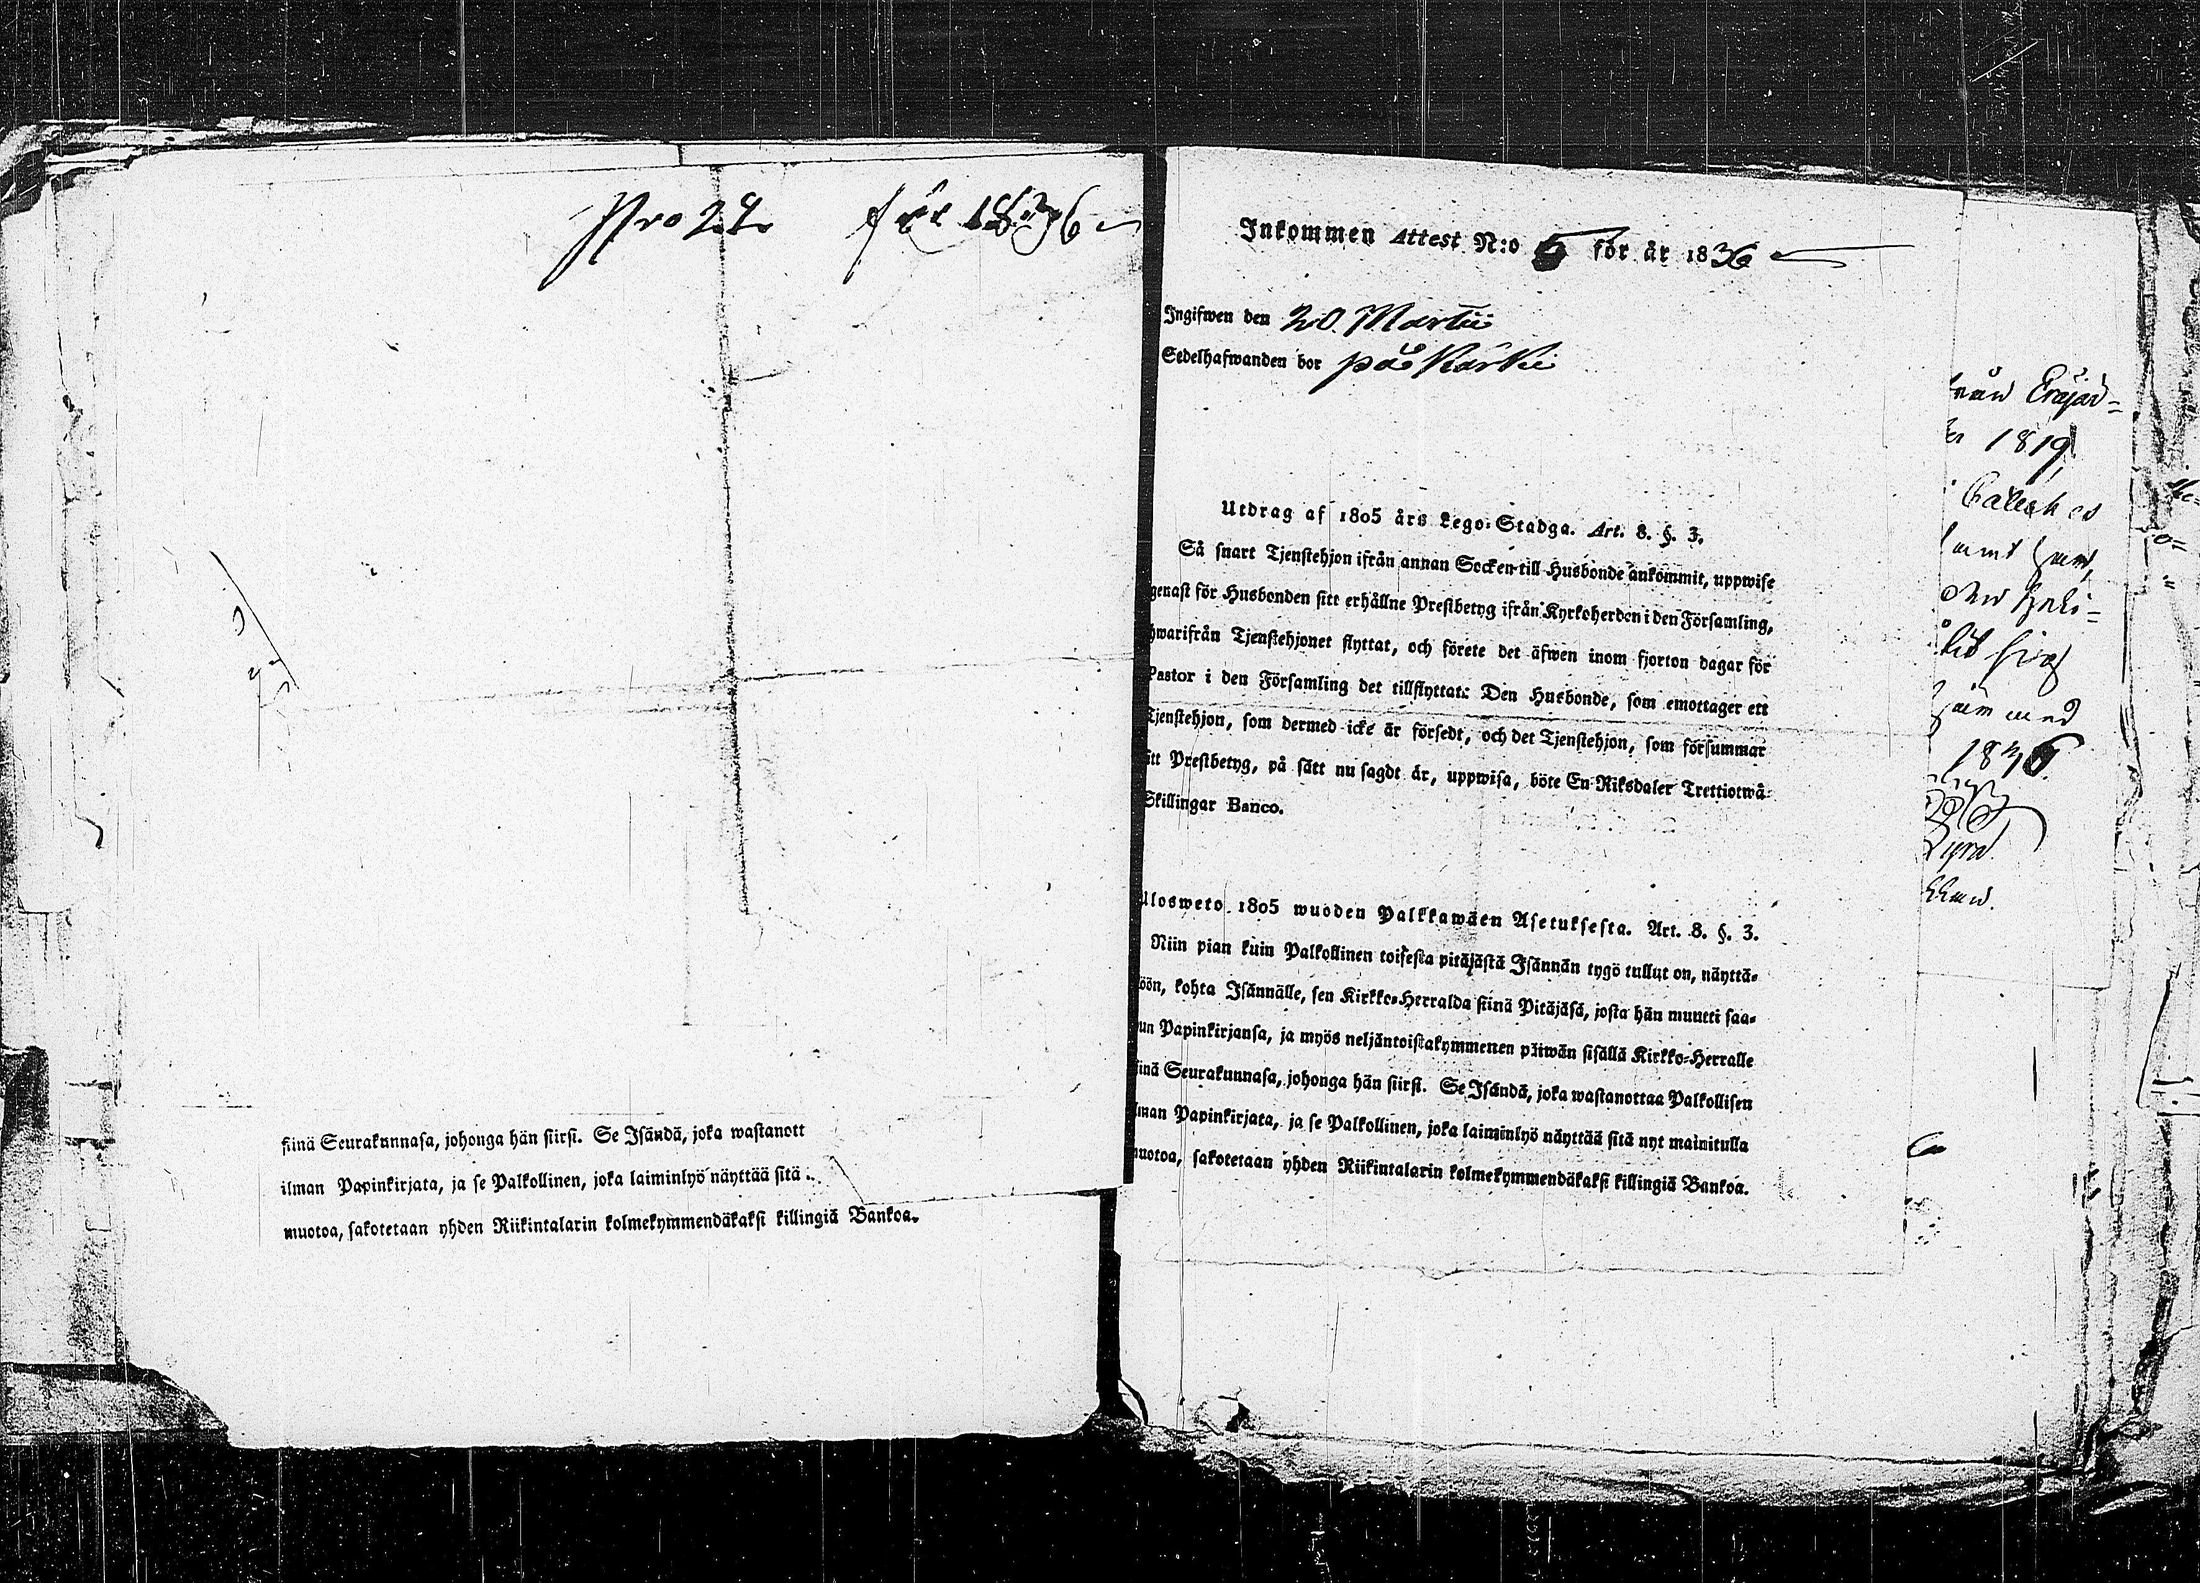 för 1836
siinä Seurakunnasa, johonga hän siirsi. Se Isändä, joka wastanott
ilman Papinkirjata, ja se Palkollinen, joka laiminlyö näyttää sitä
muotoa, sakotetaan yhden Riikintalarin kolmekymmendäkaksi killingiä Bankoa.
Inkommen Attest N:o 5 för år 1836
Ingifwen den 20 Martii
Sedelhafwanden bor på Kärki
Utdrag af 1805 års Lego-Stadga. Art. 8. §. 3.
Så snart Tjenstehjon ifrån annan Socken till Husbonde ankommit, uppwise
genast för Husbonden sitt erhållne Prestbetyg ifrån Kyrkoherden i den Församling,
hwarifrån Tjenstehjonet flyttat, och förete det äfwen inom fjorton dagar för
Pastor i den Församling det tillflyttat: Den Husbonde, som emottager ett
Tjenstehjon, som dermed icke är försedt, och det Tjenstehjon, som försummar
itt Prestbetyg, på sätt nu sagdt är, uppwisa, böte En Riksdaler Trettiotwå
Skillingar Banco.
Ulosweto 1805 wuoden Palkkawäen Asetuksesta. Art. 8. §. 3.
Niin pian kuin Palkollinen toisesta pitäjästä Isännän tygö tullut on, näyttä-
öön, kohta Isännälle, sen Kirkko-Herralda siinä Pitäjäsä, josta hän muutti saa-
un Papinkirjansa, ja myös neljäntoistakymmenen päiwän sisällä Kirkko-Herralle
iinä Seurakunnasa, johonga hän siirsi. Se Isändä, joka wastanottaa Palkollisen
lman Papinkirjata, ja se Palkollinen, joka laiminlyö näyttää sitä nyt mainitulla
muotoa, sakotetaan yhden Riikintalarin kolmekymmendäkaksi killingiä Bankoa.
1819
1836